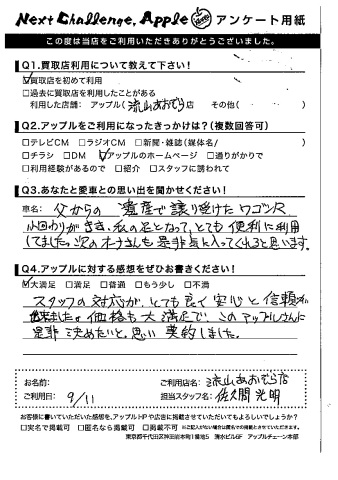 Next Challenge, Apple アンケート用紙
この度は当店をご利用いただきありがとうございました。
Q1.買取店利用について教えて下さい!
☑買取店を初めて利用
□過去に買取店を利用したことがある
利用した店舗: アップル(流山あおぞら店 その他( )
Q2.アップルをご利用になったきっかけは?(複数回答可)
□テレビCM □ラジオCM □新聞・雑誌(媒体名/ )
□チラシ □DM ☑アップルのホームページ □通りがかりで
□利用経験があるので □紹介 □スタッフに誘われて
Q3.あなたと愛車との思い出を聞かせください!
車名: 父からの遺産で譲り受けたワゴンR
小回りがきき、私の足となって、とても便利に利用
してました。次のオーナーさんも是非気に入ってくれると思います。
Q4.アップルに対する感想をぜひお書きください!
☑大満足 □満足 □普通 □もう少し □不満
スタッフの対応が、とても良く安心と信頼が
出来ました。価格も大満足で、このアップルさんに
是非決めたいと、思い契約しました。
お名前: ご利用店名: 流山あおぞら店
ご利用日: 9/11 担当スタッフ名: 佐久間光明
お客様に書いていただいた感想を、アップルHPや広告に掲載させていただいてもよろしいでしょうか?
□実名で掲載可 □匿名なら掲載可 □掲載不可 ※ご記入がない場合は匿名での掲載とさせていただきます。
東京都千代田区神田岩本町1番地5 清水ビル6F アップルチェーン本部